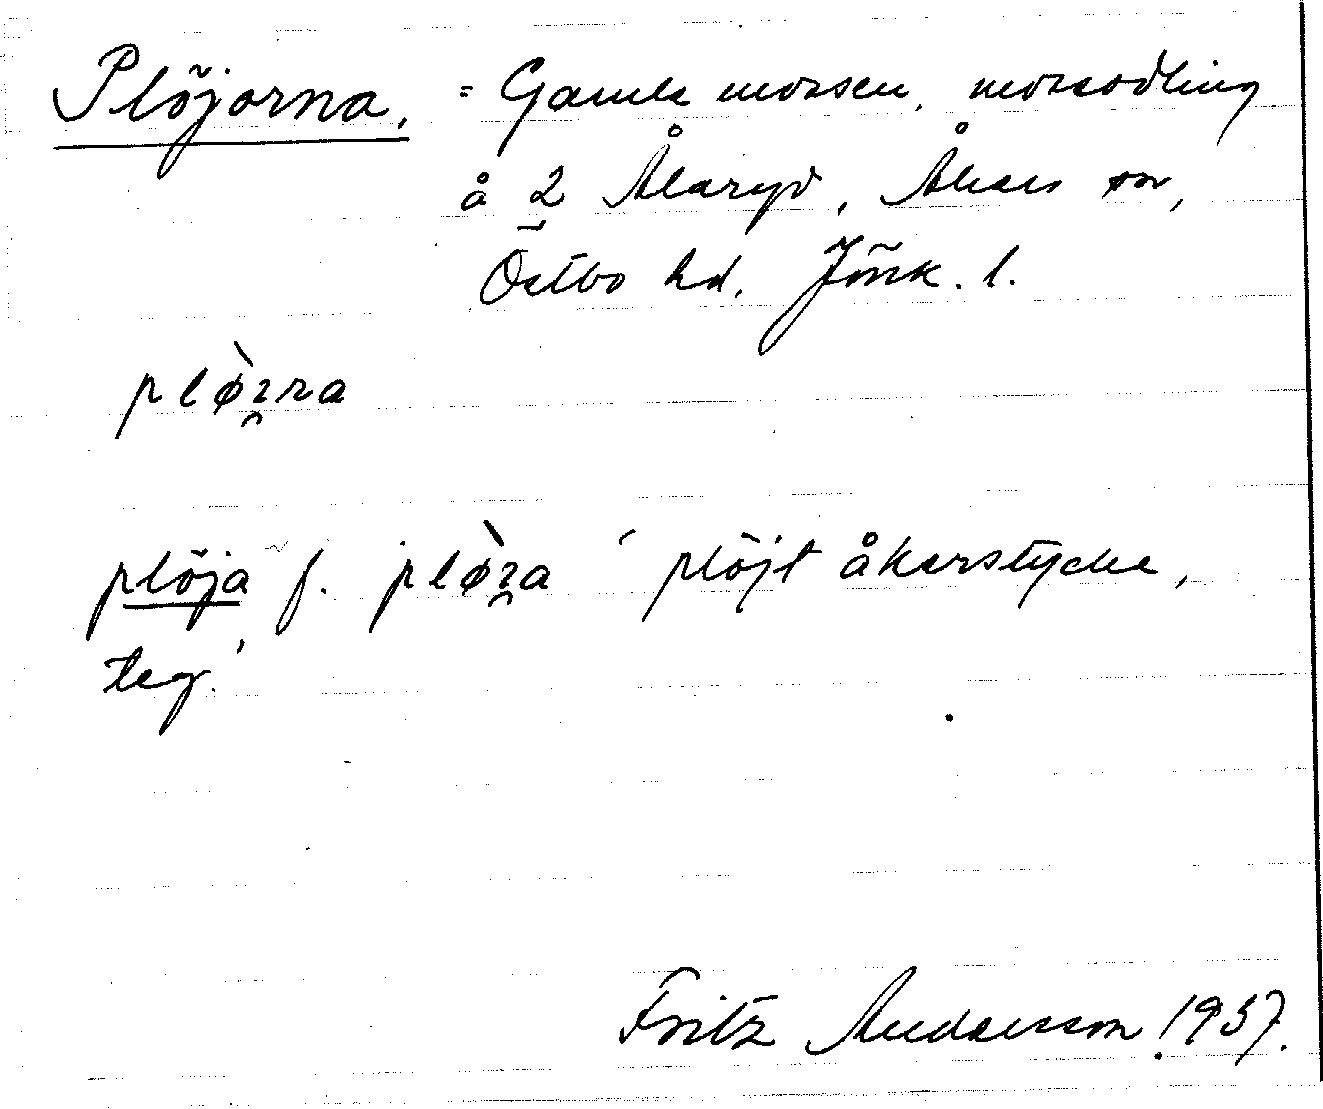 Plöjorna, = Gamla mossen, mossodling
å 2 Ålaryd, Åkers sn,
Östbo hd. Jönk. l.
plø̀ɿ̯ra
plöja f. plø̀ɿ̯a 'plöjt åkerstycke,
teg.'
Fritz Andersson 1937.